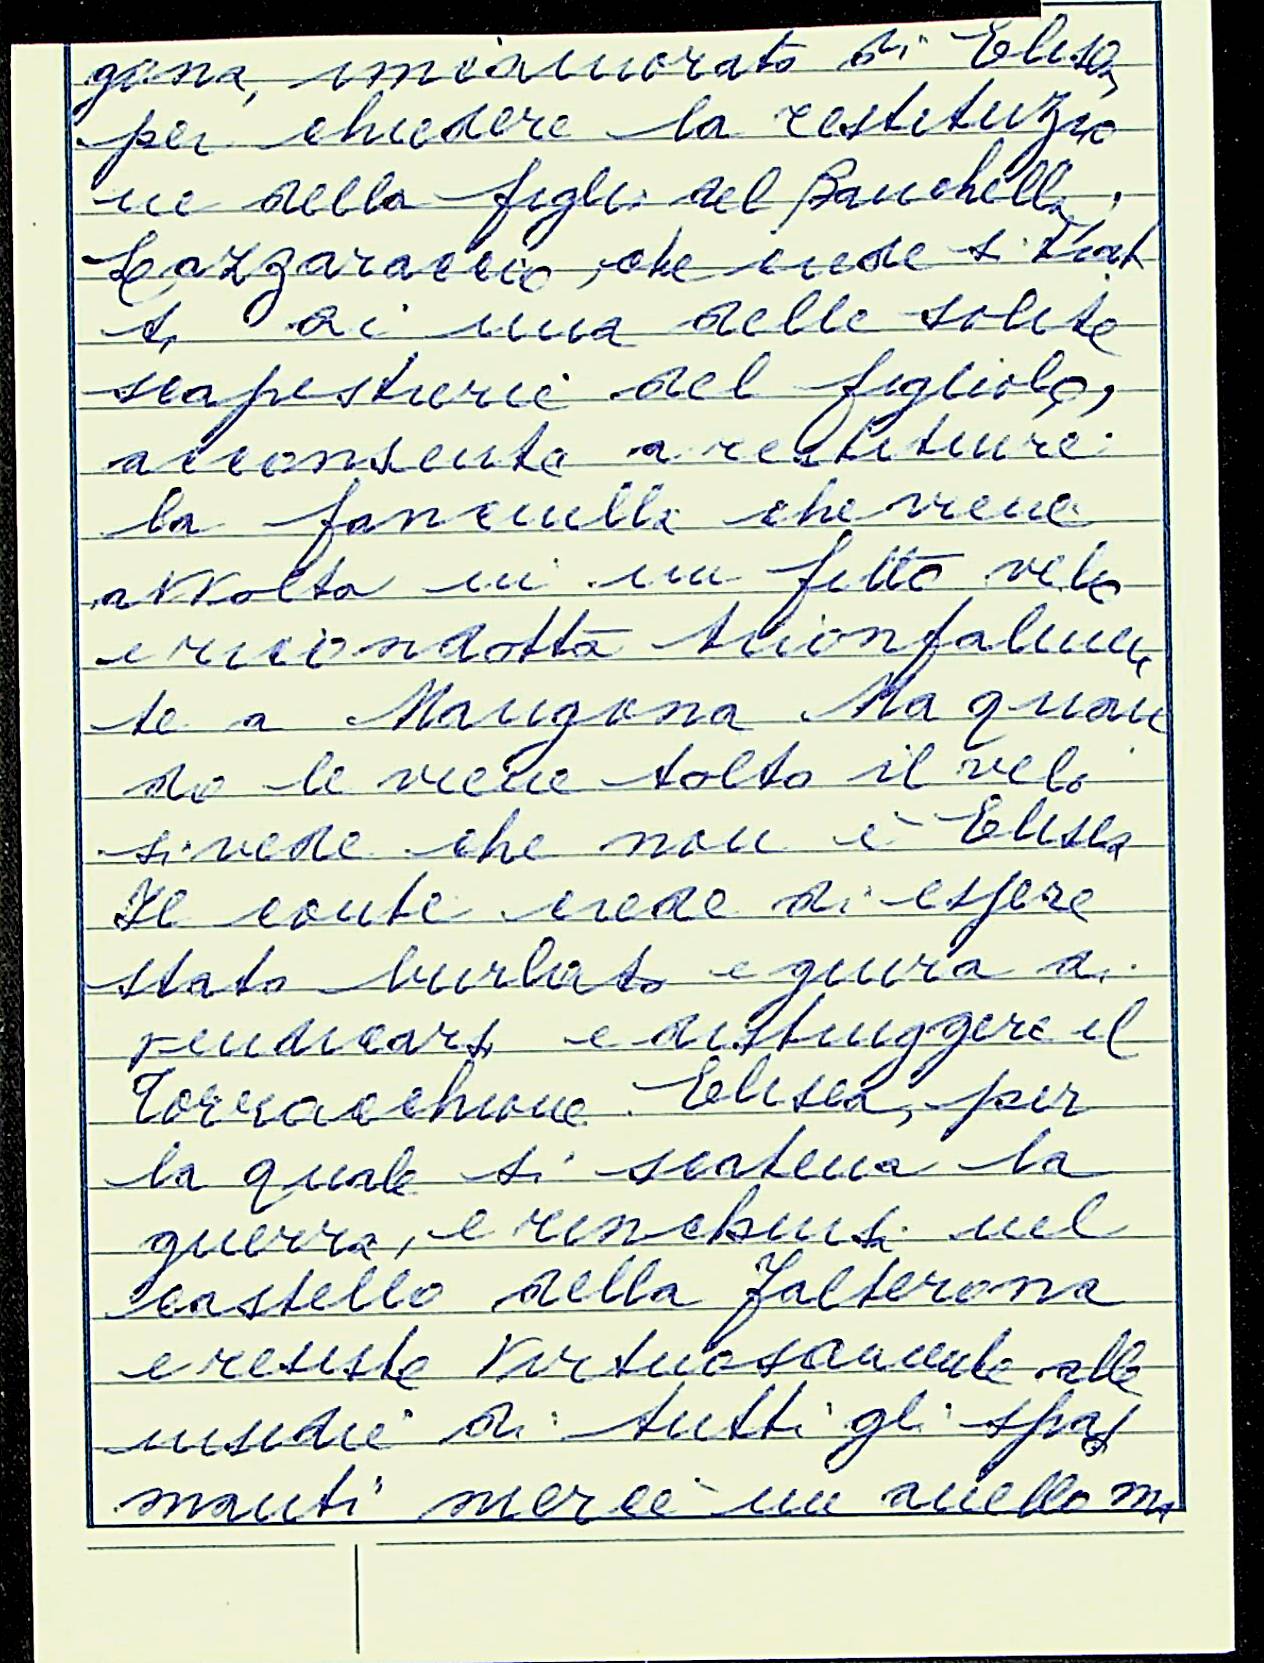 gona, innamorato di Elisea,
per chiedere la restituzio
ne della figlia del Banchella.
Lazzaraccio, che crede si trat
ti di una delle solite
scapestrerie del figliolo,
acconsente a restituire
la fanciulla che viene
avvolta in un fitto velo
e ricondotta trionfalmen
te a Mangona Ma quan
do le viene tolto il velo
si vede che non è Elisea
Il conte crede di essere
stato burlato e giura di
vendicarsi e distruggere il
Torracchione. Elisea, per
la quale si scatena la
guerra, è rinchiusa nel
castello della Falterona
e resiste virtuosamente alle
insidie di tutti gli spasi
manti mercè un anello ma